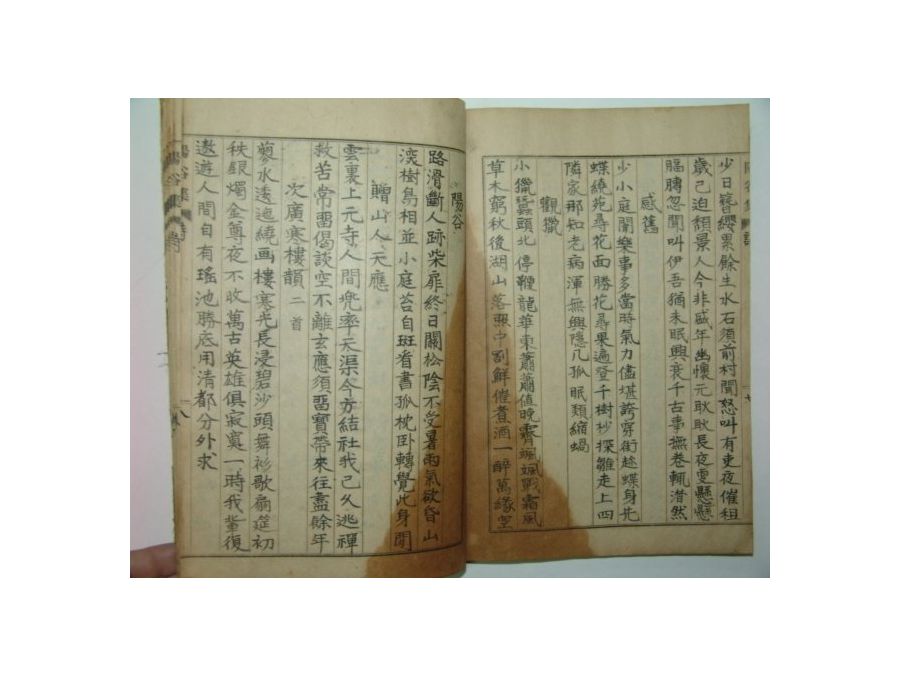 少日簪纓累餘生水石須前村聞怒叫有吏夜催租
歲已迫頹景人今非盛年幽懷元耿耿長夜更懸懸
腷膊忽聞叫伊吾猶未眠興衰千古事撫卷輒潸然
感舊
少小庭闈樂事多當時氣力儘堪誇穿街趁蝶身先
蝶繞苑尋花面勝花尋果遍登千樹杪探雛走上四
隣家那知老病渾無興隱几孤眠類縮蝸
觀獵
小獵蠶頭北停鞭龍華東蕭蕭値晩霽颯颯戰霜風
草木窮秋後湖山落照中割鮮催煮酒一醉萬緣空
陽谷
路滑斷人跡柴扉終日關松陰不受暑雨氣欲昏山
淡樹鳥相並小庭苔自斑看書孤枕臥轉覺此身閒
贈山人天應
雲裏上元寺人間兜率天渠今方結社我已久逃禪
救苦常留偈談空不離玄應須留寶帶來往盡餘年
次廣寒樓韻 二首
蓼水逶迤繞画樓寒光長浸碧沙頭舞衫歌扇筵初
秩銀燭金尊夜不收萬古英雄俱寂寞一時我輩復
遨遊人間自有瑤池勝底用清都分外求
陽谷集 詩 八